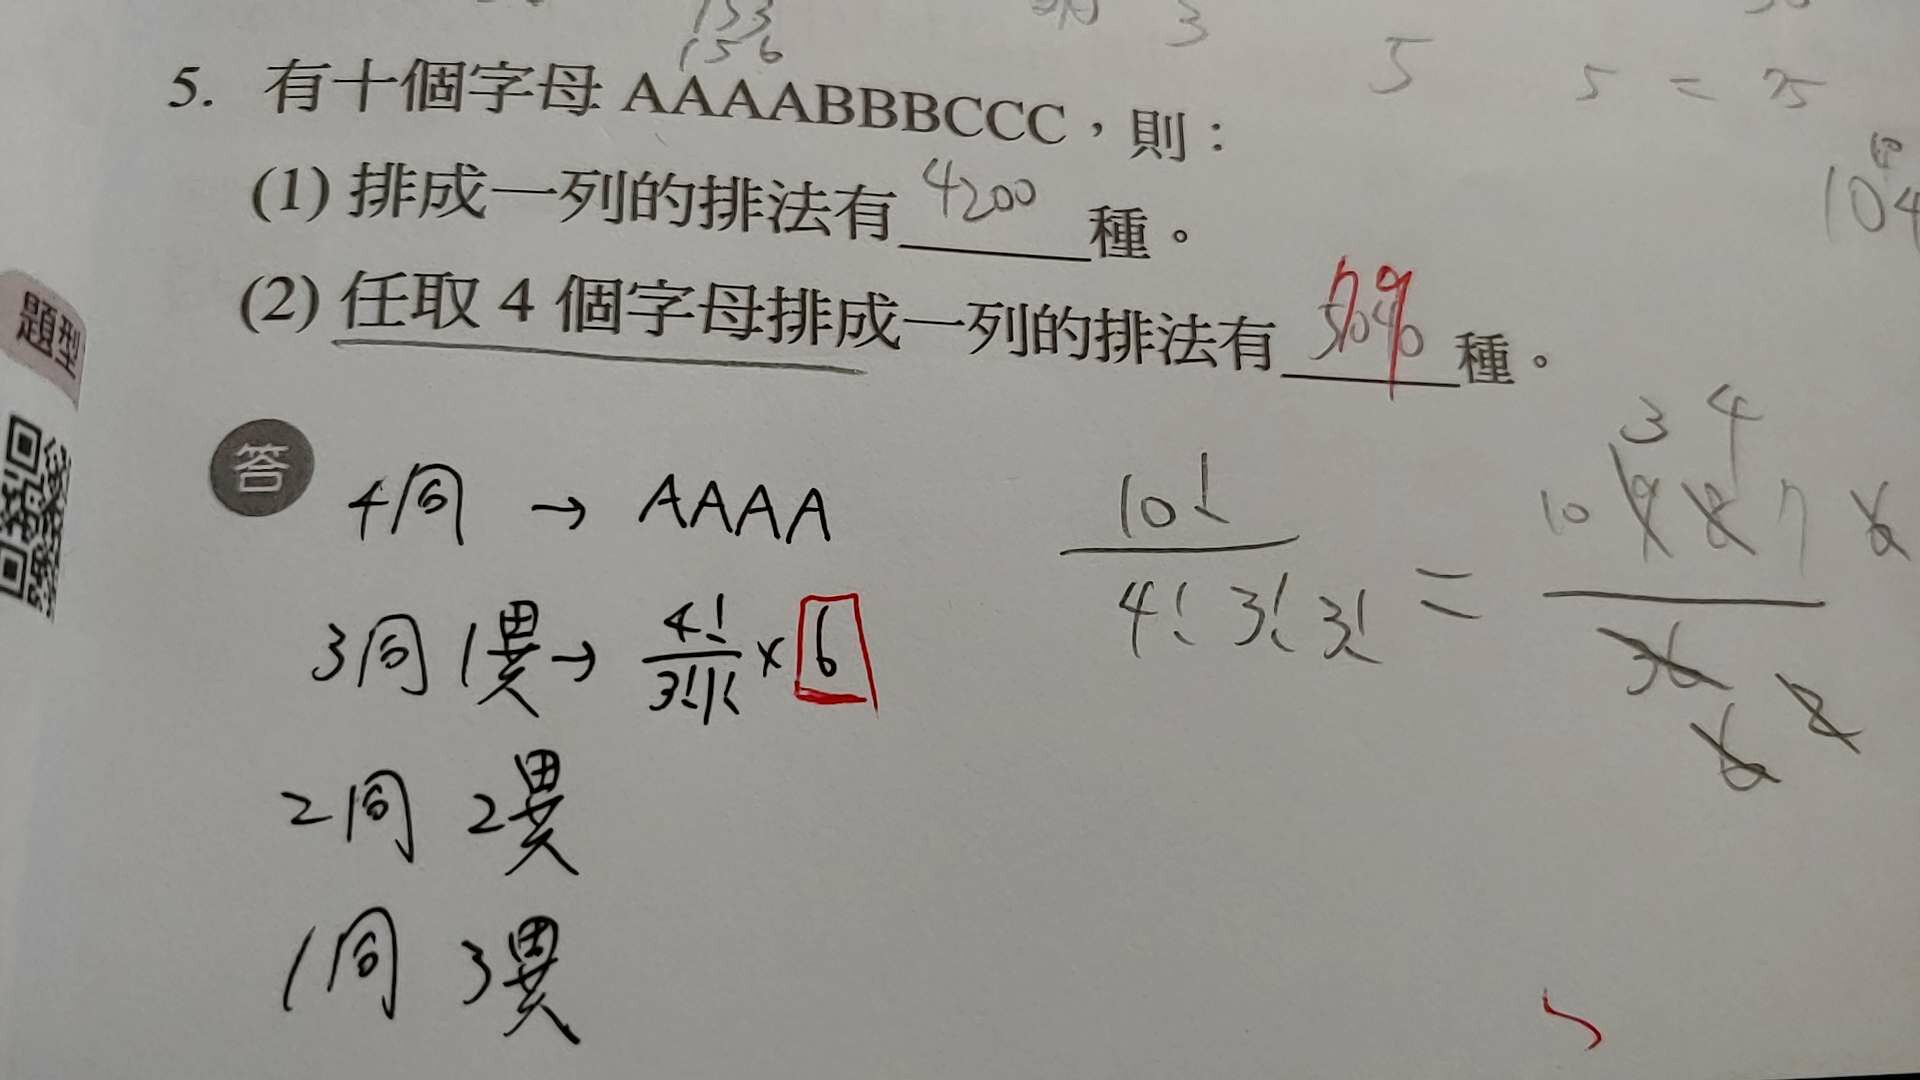 133
156
3
5
5 = 25
5. 有十個字母 AAAABBBCCC,則:
104
(1) 排成一列的排法有 4200 種。
(2) 任取 4 個字母排成一列的排法有 79 種。
題型
答
4同 → AAAA
10! / 4! 3! 3! = 10 9 8 7 6 / 36 6 2
3 4
3同 1異 → 4! / 3!1! × 6
2同 2異
1同 3異